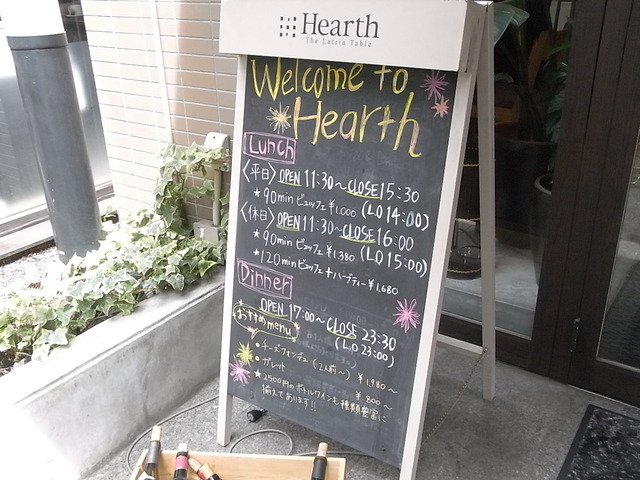 Hearth
The Latria Table
Welcome to
Hearth
Lunch
〈平日〉 OPEN 11:30~CLOSE 15:30
★90min ビュッフェ ¥1.000 (LO 14:00)
〈休日〉 OPEN 11:30~CLOSE 16:00
★90min ビュッフェ ¥1.380 (LO 15:00)
★120min ビュッフェ+ハーブティー ¥1.680
Dinner
OPEN 17:00~CLOSE 23:30
(LO 23:00)
おすすめ menu
・チーズフォンデュ (2人前~) ¥1.980~
・ブレット ¥800~
★2500円のボトルワインも種類豊富に
揃えてあります!!